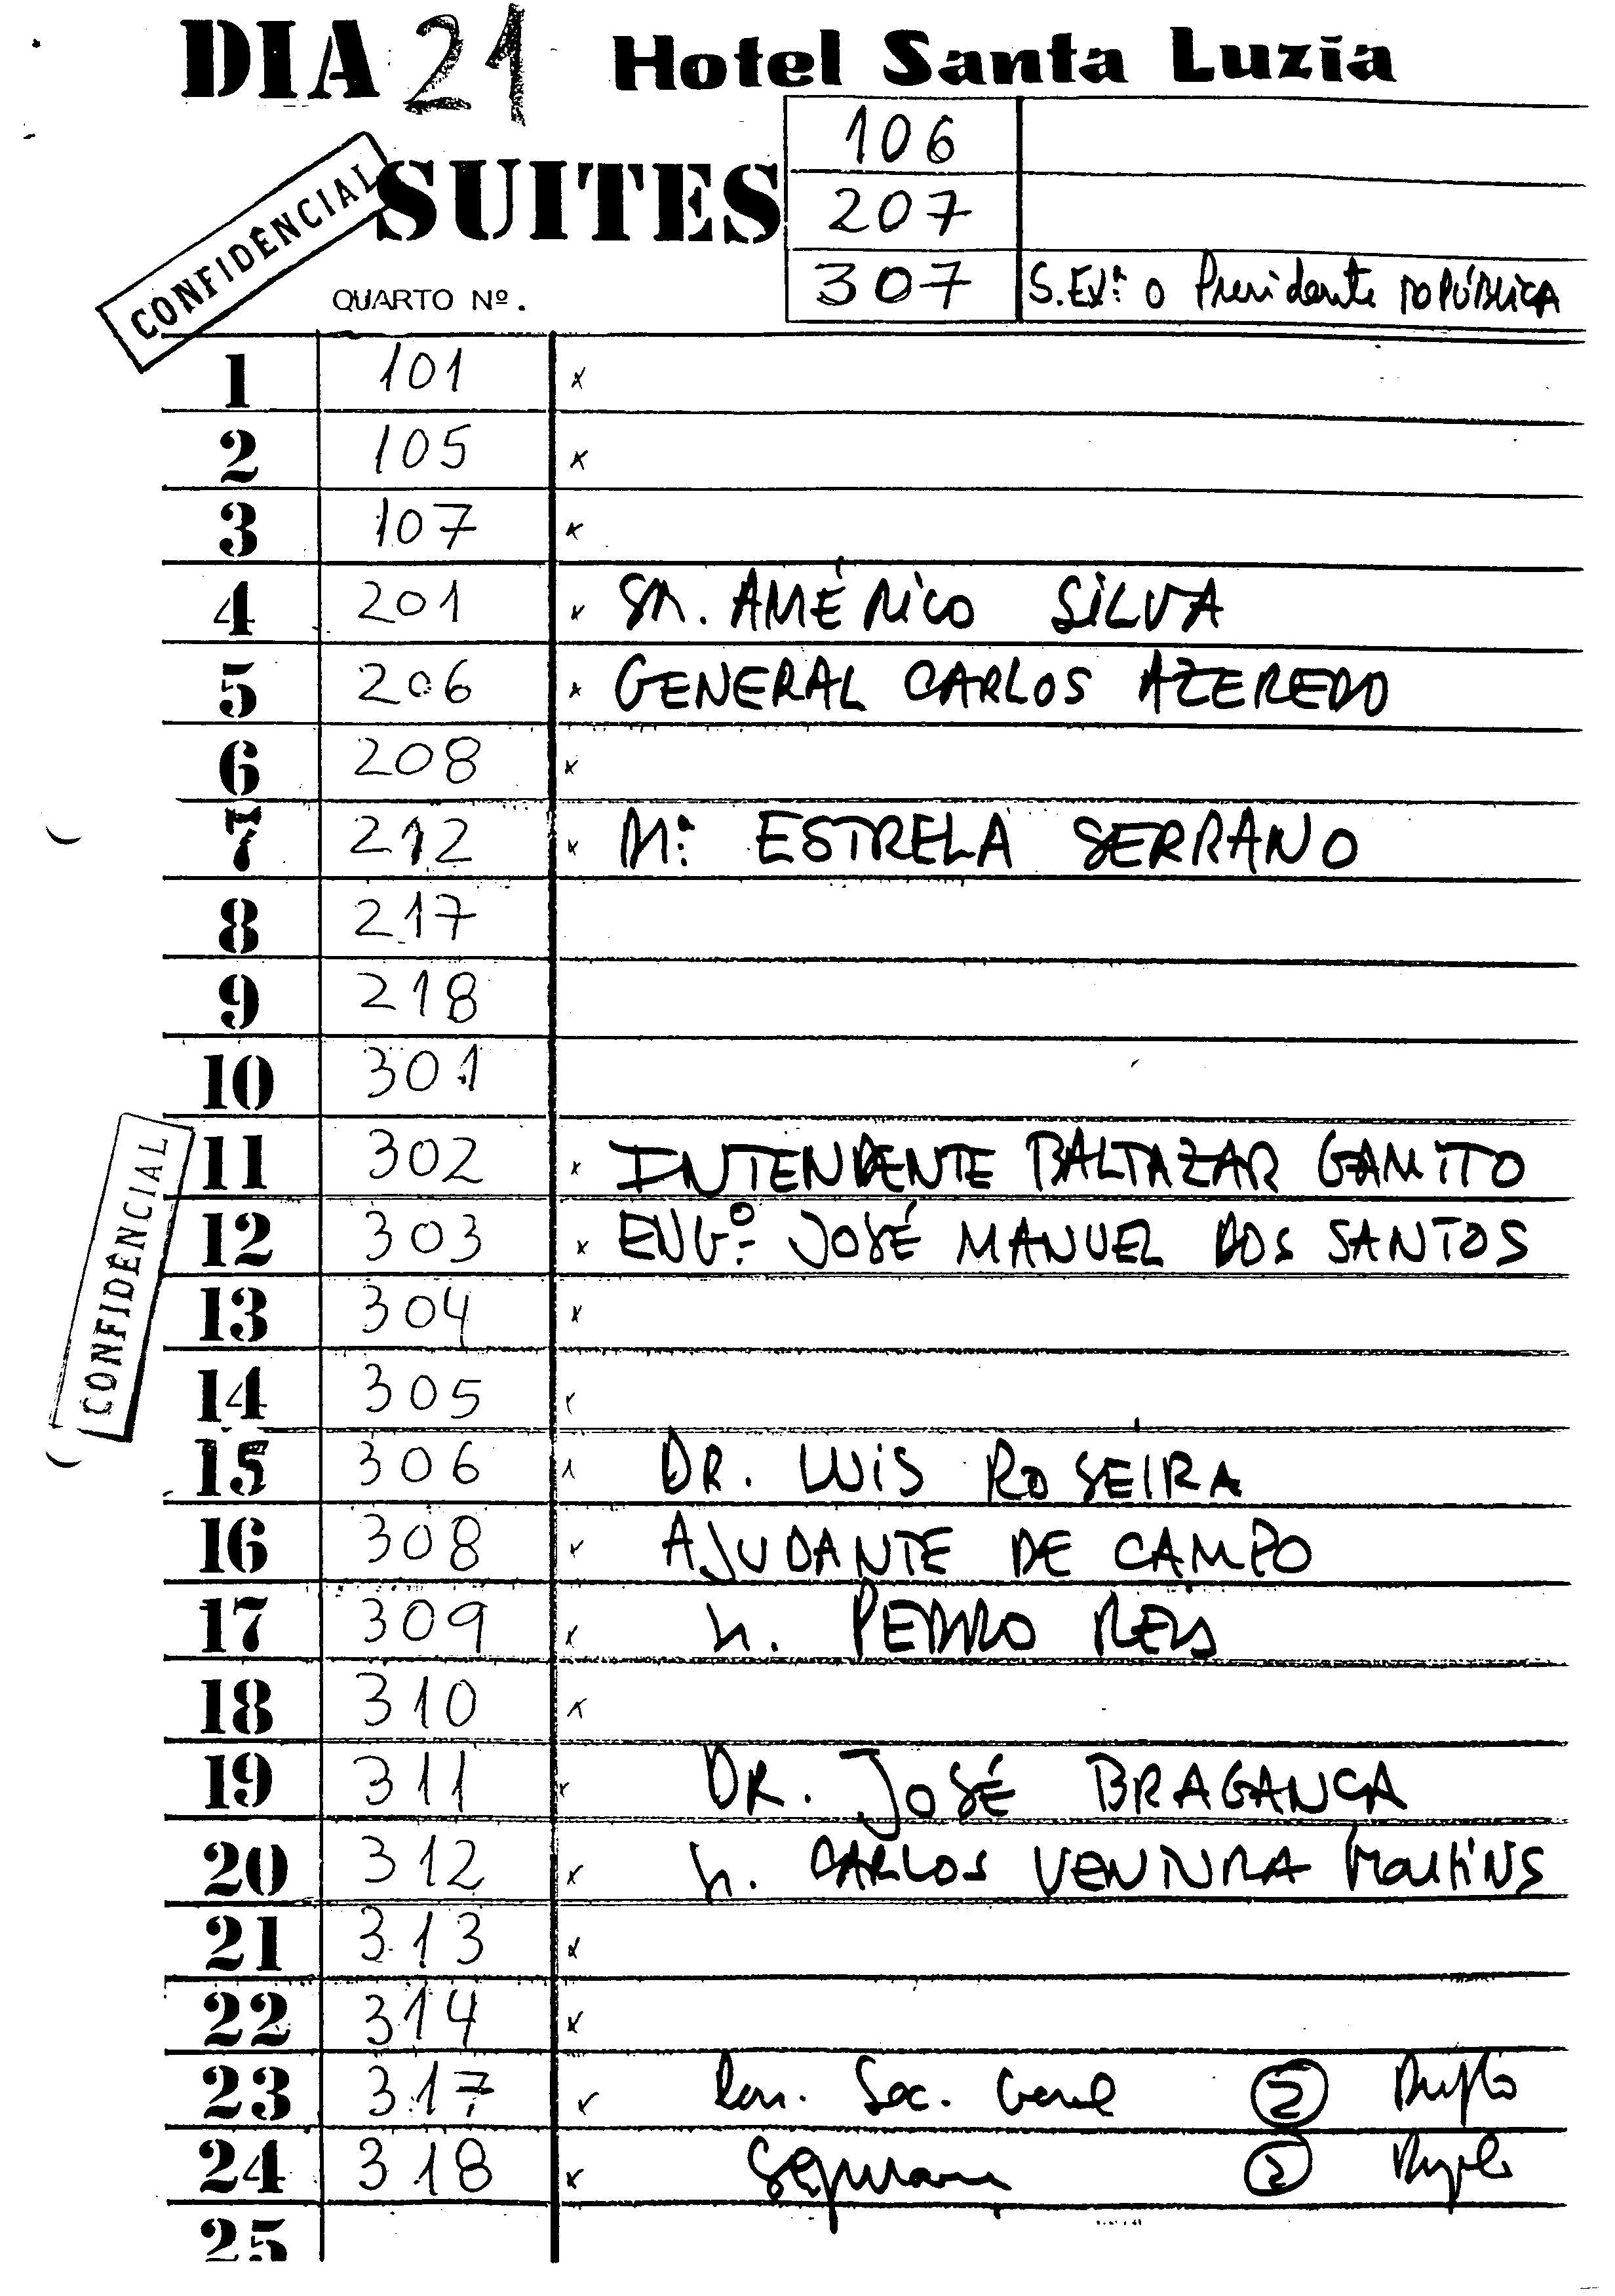 DIA 21 Hotel Santa Luzia
106
CONFIDÊNCIAL SUITES 207
QUARTO Nº. 307 S. EXª. O Presidente REPÚBLICA
1 101 x
2 105 x
3 107 x
4 201 x SR. AMÉRICO SILVA
5 206 x GENERAL CARLOS AZEREDO
6 208 x
7 212 x Mª. ESTRELA SERRANO
8 217
9 218
10 301
11 302 x INTENDENTE BALTAZAR GAMITO
12 303 x ENGº. JOSÉ MANUEL DOS SANTOS
13 304 x
14 305 x
CONFIDÊNCIAL
15 306 x DR. LUIS ROSEIRA
16 308 x AJUDANTE DE CAMPO
17 309 x Sr. PEDRO REIS
18 310 x
19 311 x DR. JOSÉ BRAGANCA
20 312 x Sr. CARLOS VENTURA MARTINS
21 313 x
22 314 x
23 317 x Sec. Geral 2 Duplo
24 318 x 2 Duplo
25